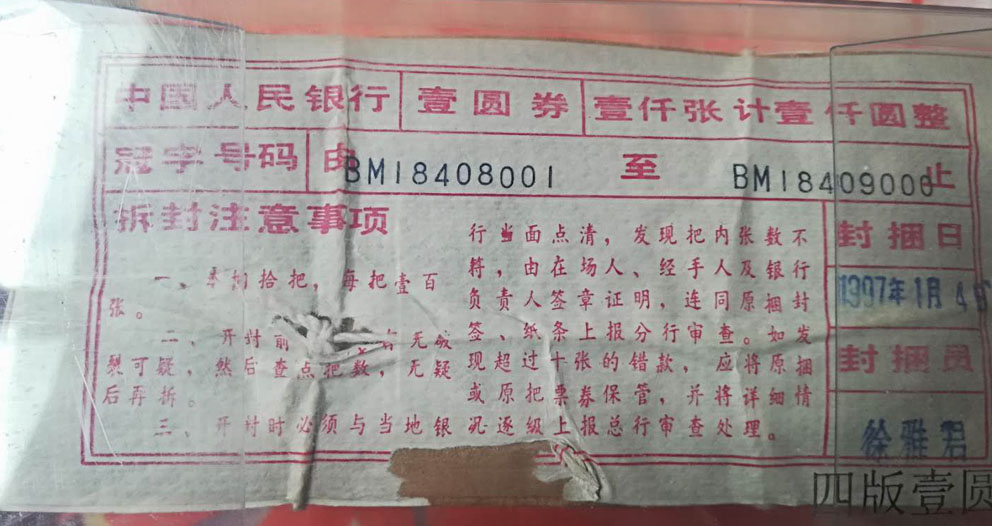 中国人民银行 壹圆券 壹仟张计壹仟圆整
冠字号码 由BM18408001 至 BM18409000止
拆封注意事项
一、本捆拾把，每把壹百
张。
二、开封前 有无破
裂可疑，然后查点把数，无疑
后再拆。
三、开封时必须与当地银
行当面点清，发现把内张数不
符，由在场人、经手人及银行
负责人签章证明，连同原捆封
签、纸条上报分行审查。如发
现超过十张的错款，应将原捆
或原把票券保管，并将详细情
况逐级上报总行审查处理。
封捆日
1997年1月4日
封捆员
徐雅君
四版壹圆